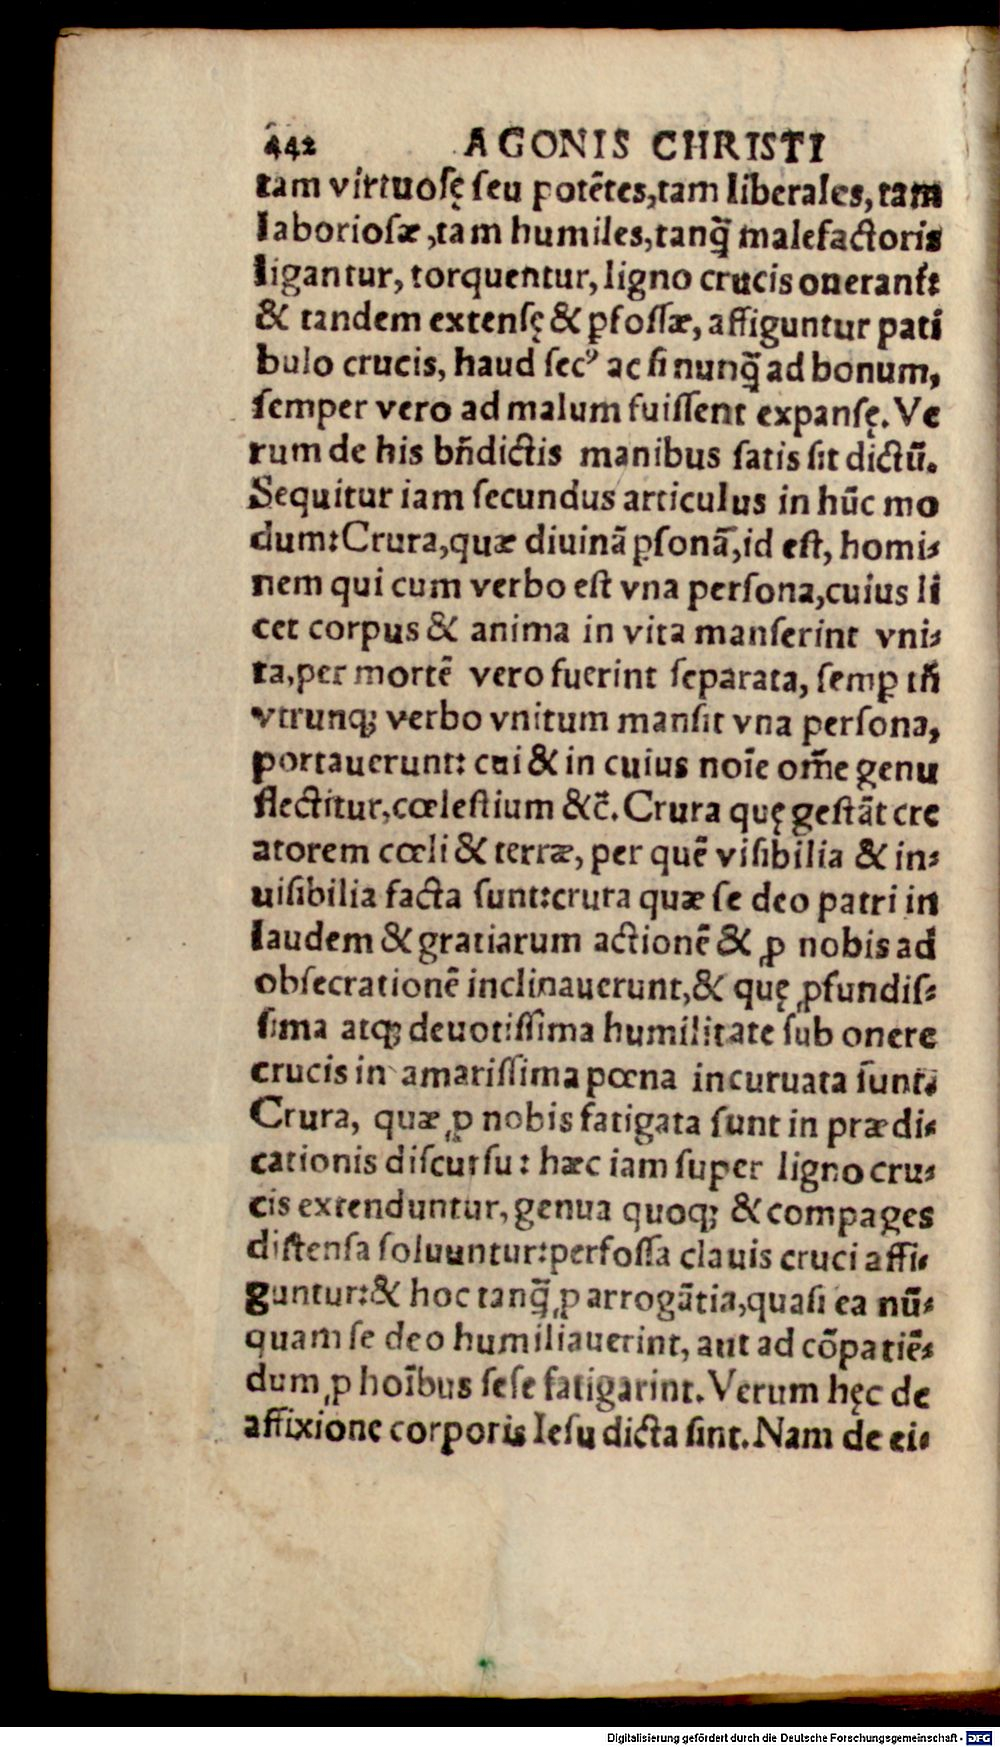 442 AGONIS CHRISTI
tam virtuosę seu potētes, tam liberales, tam
laboriosæ, tam humiles, tanq̃ malefactoris
ligantur, torquentur, ligno crucis onerant᷑
& tandem extensę & ꝑfossæ, affiguntur pati
bulo crucis, haud secꝰ ac si nunq̃ ad bonum,
semper vero ad malum fuissent expansę. Ve
rum de his bñdictis manibus satis sit dictū.
Sequitur iam secundus articulus in hūc mo
dum: Crura, quæ diuinā ꝑsonā, id est, homi⸗
nem qui cum verbo est vna persona, cuius li
cet corpus & anima in vita manserint vni⸗
ta, per mortē vero fuerint separata, semꝑ tñ
vtrunq; verbo vnitum mansit vna persona,
portauerunt: cui & in cuius noīe om̄e genu
flectitur, cœlestium &c̄. Crura quę gestāt cre
atorem cœli & terræ, per quē visibilia & in⸗
uisibilia facta sunt: crura quæ se deo patri in
laudem & gratiarum actionē & ꝓ nobis ad
obsecrationē inclinauerunt, & quę ꝓfundis⸗
sima atq; deuotissima humilitate sub onere
crucis in amarissima pœna incuruata sunt.
Crura, quæ ꝓ nobis fatigata sunt in prædi⸗
cationis discursu: hæc iam super ligno cru⸗
cis extenduntur, genua quoq; & compages
distensa soluuntur: perfossa clauis cruci affi⸗
guntur: & hoc tanq̃ ꝓ arrogātia, quasi ea nū⸗
quam se deo humiliauerint, aut ad cōpatiē⸗
dum ꝓ hoībus sese fatigarint. Verum hęc de
affixione corporis Iesu dicta sint. Nam de ei⸗
Digitalisierung gefördert durch die Deutsche Forschungsgemeinschaft - DFG